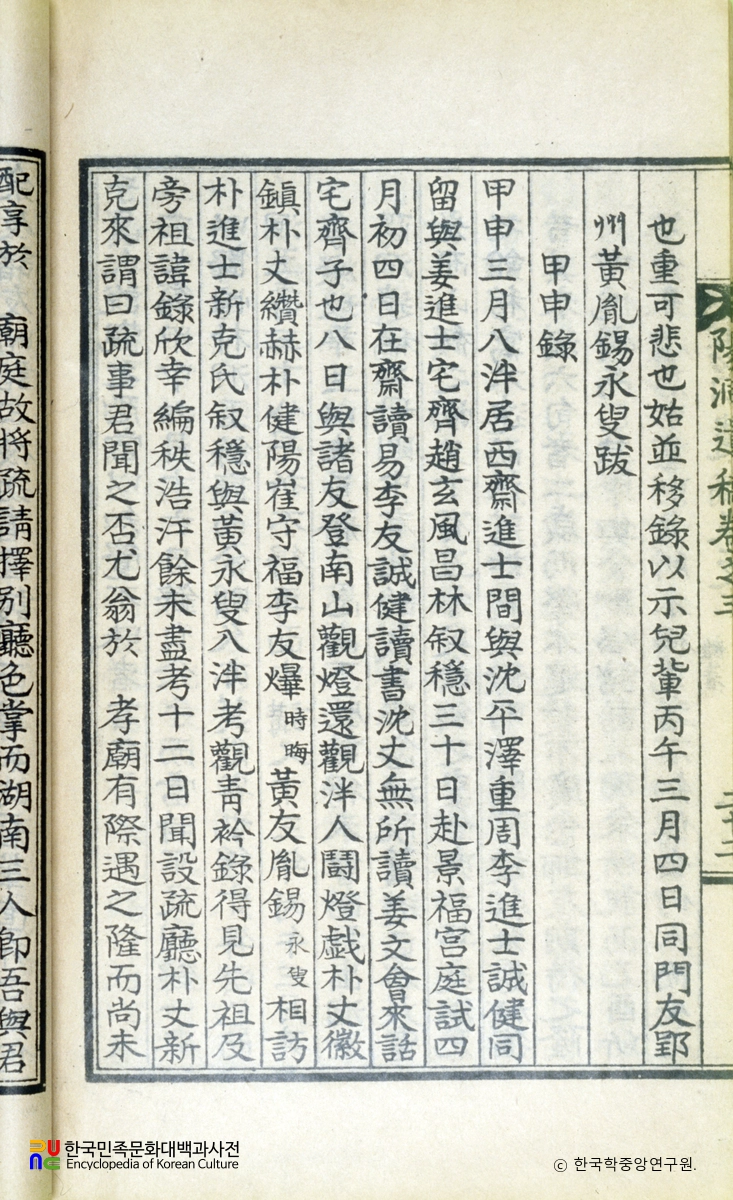 陽洞遺稿卷之三 二十二
也重可悲也姑並移錄以示兒輩丙午三月四日同門友郢
州黃胤錫永叟跋
甲申錄
甲申三月八泮居西齋進士間與沈平澤重周李進士誠健同
留與姜進士宅齊趙玄風昌林叙穩三十日赴景福宮庭試四
月初四日在齋讀易李友誠健讀書沈丈無所讀姜文會來話
宅齊子也八日與諸友登南山觀燈還觀泮人鬪燈戱朴丈徽
鎮朴丈纘赫朴健陽崔守福李友爗時晦黃友胤錫永叟相訪
朴進士新克氏叙穩與黃永叟入泮考觀靑衿錄得見先祖及
旁祖諱錄欣幸編秩浩汗餘未盡考十二日聞設疏廳朴丈新
克來謂曰疏事君聞之否尤翁於 孝廟有際遇之隆而尚未
配享於 廟庭故將疏請擇別廳色掌而湖南三人卽吾與君
한국민족문화대백과사전
Encyclopedia of Korean Culture
ⓒ 한국학중앙연구원.